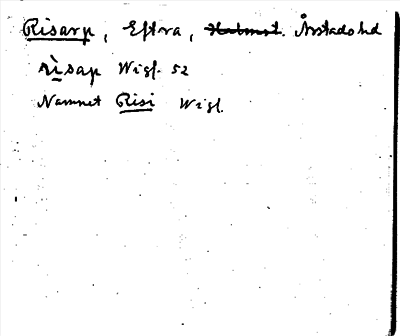 Risarp, Eftra, Halmst. Årstads hd
rìsap Wigf. 52
Namnet Risi Wigf.